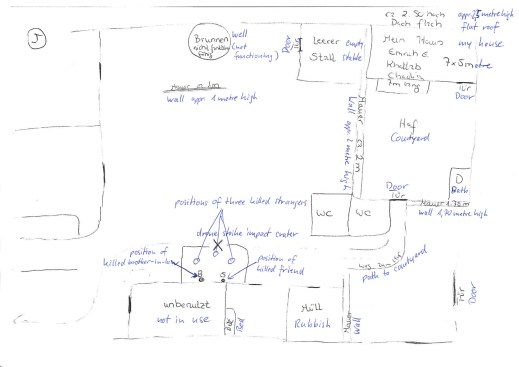 5
Brunnen
well
(not
functioning)
Door
Tür
Leerer empty
Stall stable
ca 2.50 hoch
Dach flach
appr. 2,5 metre high
flat roof
Mein Haus
my house
Emrah E.
7 x 5 metre
7m lang
Tür
Door
wall appr. 1 metre high
Mauer ca. 2 m
Wall appr. 2 metre high
Hof
Courtyard
D
Bath
Door
Tür
wall 1,70 metre high
WC
WC
positions of three killed strangers
drone strike impact crater
position of
killed brother-in-law
B
S
position of
killed friend
path to courtyard
unbenutzt
not in use
Bed
Müll
Rubbish
Mauer
Wall
Tür
Door